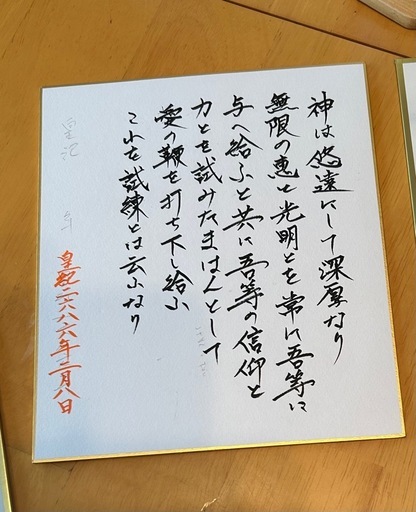 神は悠遠にして深厚なり
無限の恵と光明とを常に吾等に
与へ給ふと共に吾等の信仰と
力とを試みたまはんとして
愛の鞭を打ち下し給ふ
これを試練とは云ふなり
皇紀二六八六年二月八日
皇紀 年